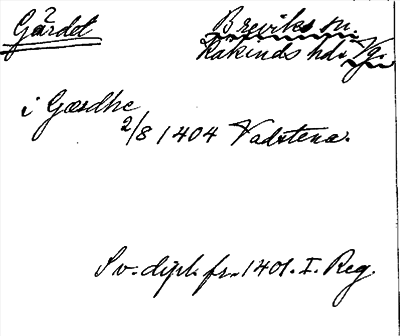 Gärdet
Breviks sn.
Kåkinds hd. Vg.
i Gærdhe
2/8 1404 Vadstena.
Sv. dipl. fr. 1401. I. Reg.